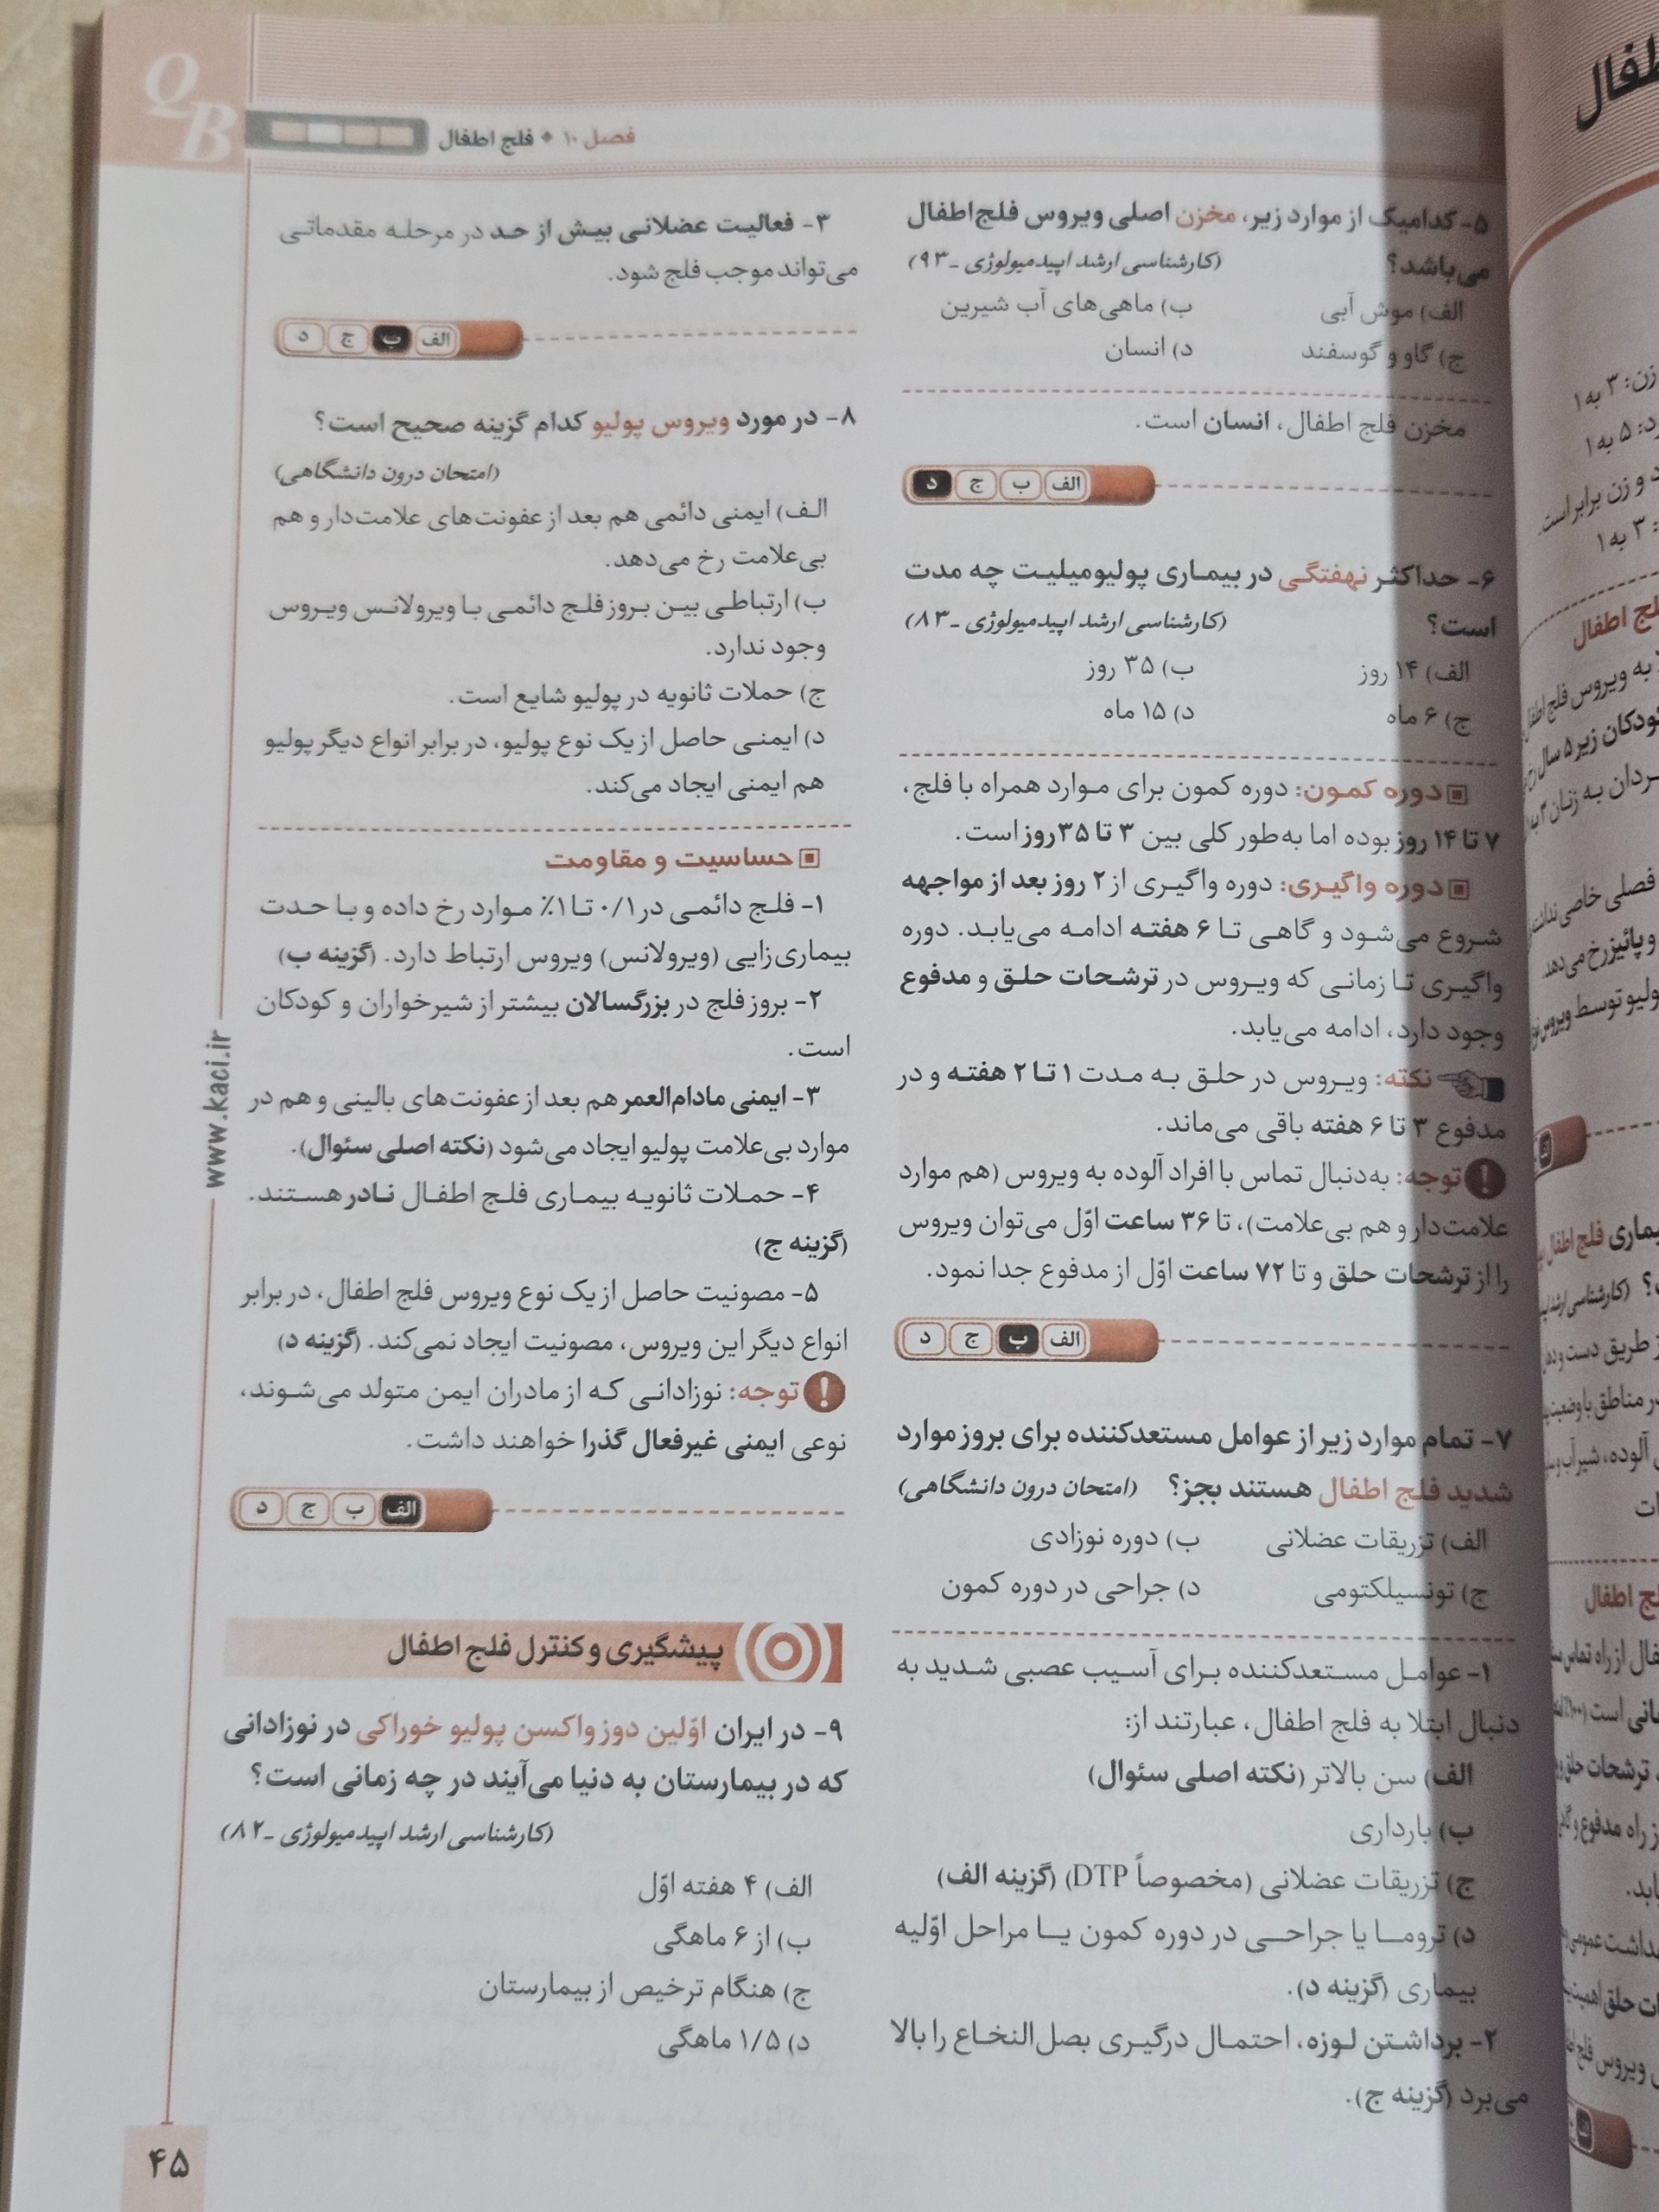 QB
فصل ۱۰ ◆ فلج اطفال
۵- کدامیک از موارد زیر، مخزن اصلی ویروس فلج‌اطفال
می‌باشد؟ (کارشناسی ارشد اپیدمیولوژی ـ ۹۳)
الف) موش آبی ب) ماهی‌های آب شیرین
ج) گاو و گوسفند د) انسان
مخزن فلج اطفال، انسان است.
الف ب ج د
۶- حداکثر نهفتگی در بیماری پولیومیلیت چه مدت
است؟ (کارشناسی ارشد اپیدمیولوژی ـ ۸۳)
الف) ۱۴ روز ب) ۳۵ روز
ج) ۶ ماه د) ۱۵ ماه
دوره کمون: دوره کمون برای موارد همراه با فلج،
۷ تا ۱۴ روز بوده اما به‌طور کلی بین ۳ تا ۳۵ روز است.
دوره واگیری: دوره واگیری از ۲ روز بعد از مواجهه
شروع می‌شود و گاهی تا ۶ هفته ادامه می‌یابد. دوره
واگیری تا زمانی که ویروس در ترشحات حلق و مدفوع
وجود دارد، ادامه می‌یابد.
نکته: ویروس در حلق به مدت ۱ تا ۲ هفته و در
مدفوع ۳ تا ۶ هفته باقی می‌ماند.
توجه: به‌دنبال تماس با افراد آلوده به ویروس (هم موارد
علامت‌دار و هم بی‌علامت)، تا ۳۶ ساعت اوّل می‌توان ویروس
را از ترشحات حلق و تا ۷۲ ساعت اوّل از مدفوع جدا نمود.
الف ب ج د
۷- تمام موارد زیر از عوامل مستعدکننده برای بروز موارد
شدید فلج اطفال هستند بجز؟ (امتحان درون دانشگاهی)
الف) تزریقات عضلانی ب) دوره نوزادی
ج) تونسیلکتومی د) جراحی در دوره کمون
۱- عوامل مستعدکننده برای آسیب عصبی شدید به
دنبال ابتلا به فلج اطفال، عبارتند از:
الف) سن بالاتر (نکته اصلی سئوال)
ب) بارداری
ج) تزریقات عضلانی (مخصوصاً DTP) (گزینه الف)
د) تروما یا جراحی در دوره کمون یا مراحل اوّلیه
بیماری (گزینه د).
۲- برداشتن لوزه، احتمال درگیری بصل‌النخاع را بالا
می‌برد (گزینه ج).
۳- فعالیت عضلانی بیش از حد در مرحله مقدماتی
می‌تواند موجب فلج شود.
الف ب ج د
۸- در مورد ویروس پولیو کدام گزینه صحیح است؟
(امتحان درون دانشگاهی)
الف) ایمنی دائمی هم بعد از عفونت‌های علامت‌دار و هم
بی‌علامت رخ می‌دهد.
ب) ارتباطی بین بروز فلج دائمی با ویرولانس ویروس
وجود ندارد.
ج) حملات ثانویه در پولیو شایع است.
د) ایمنی حاصل از یک نوع پولیو، در برابر انواع دیگر پولیو
هم ایمنی ایجاد می‌کند.
حساسیت و مقاومت
۱- فلج دائمی در ۰/۱ تا ۱٪ موارد رخ داده و با حدت
بیماری‌زایی (ویرولانس) ویروس ارتباط دارد. (گزینه ب)
۲- بروز فلج در بزرگسالان بیشتر از شیرخواران و کودکان
است.
۳- ایمنی مادام‌العمر هم بعد از عفونت‌های بالینی و هم در
موارد بی‌علامت پولیو ایجاد می‌شود (نکته اصلی سئوال).
۴- حملات ثانویه بیماری فلج اطفال نادر هستند.
(گزینه ج)
۵- مصونیت حاصل از یک نوع ویروس فلج اطفال، در برابر
انواع دیگر این ویروس، مصونیت ایجاد نمی‌کند. (گزینه د)
توجه: نوزادانی که از مادران ایمن متولد می‌شوند،
نوعی ایمنی غیرفعال گذرا خواهند داشت.
الف ب ج د
پیشگیری و کنترل فلج اطفال
۹- در ایران اوّلین دوز واکسن پولیو خوراکی در نوزادانی
که در بیمارستان به دنیا می‌آیند در چه زمانی است؟
(کارشناسی ارشد اپیدمیولوژی ـ ۸۲)
الف) ۴ هفته اوّل
ب) از ۶ ماهگی
ج) هنگام ترخیص از بیمارستان
د) ۱/۵ ماهگی
www.kaci.ir
۴۵
زن: ۳ به ۱
۵ به ۱
و زن برابر است.
۳ به ۱
فلج اطفال
به ویروس فلج اطفال
کودکان زیر ۵ سال
فصلی خاصی ندارد
و پائیز رخ می‌دهد.
توسط ویروس
فلج اطفال
از طریق دست و دهان
آلوده، شیر، آب و
اطفال از راه تماس
ترشحات حلق و
از راه مدفوع و
عمومی
ویروس فلج